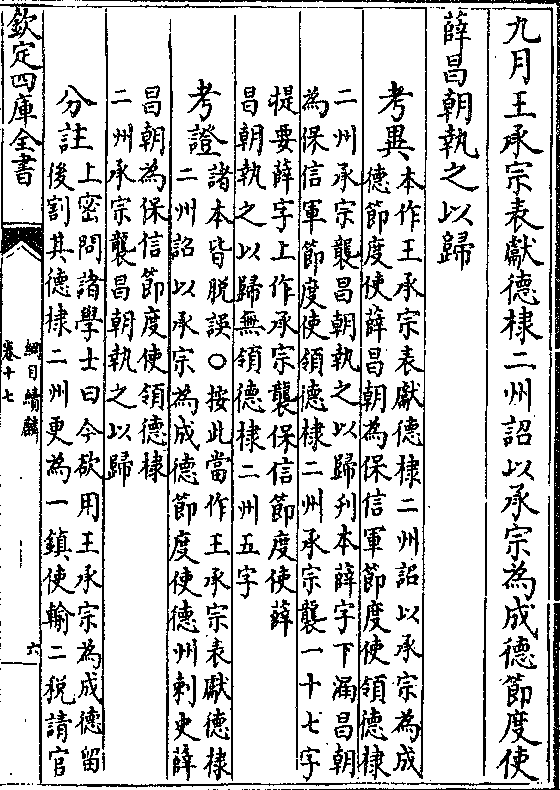 九月王承宗表獻德棣二州詔以承宗為成德節度使
薛昌朝執之以歸
考異本作王承宗表獻德棣二州詔以承宗為成
德節度使薛昌朝為保信軍節度使領德棣
二州承宗襲昌朝執之以歸刋本薛字下漏昌朝
為保信軍節度使領德棣二州承宗襲一十七字
提要薛字上作承宗襲保信節度使薛
昌朝執之以歸無領德棣二州五字
考證諸本皆脱誤○按此當作王承宗表獻德棣
二州詔以承宗為成德節度使德州刺史薛
昌朝為保信節度使領德棣
二州承宗襲昌朝執之以歸
分註上密問諸學士曰今欲用王承宗為成德留
後割其德棣二州更為一鎮使輸二税請官
欽定四庫全書
綱目續麟
卷十七
六